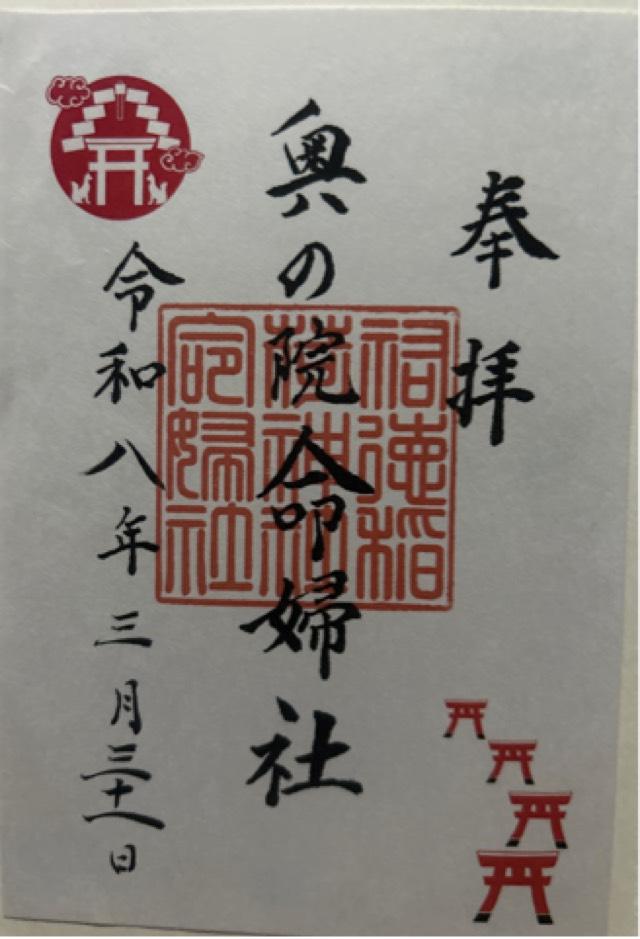 奉拝
奥の院命婦社
令和八年三月三十一日
祐徳稲
荷神社
命婦社